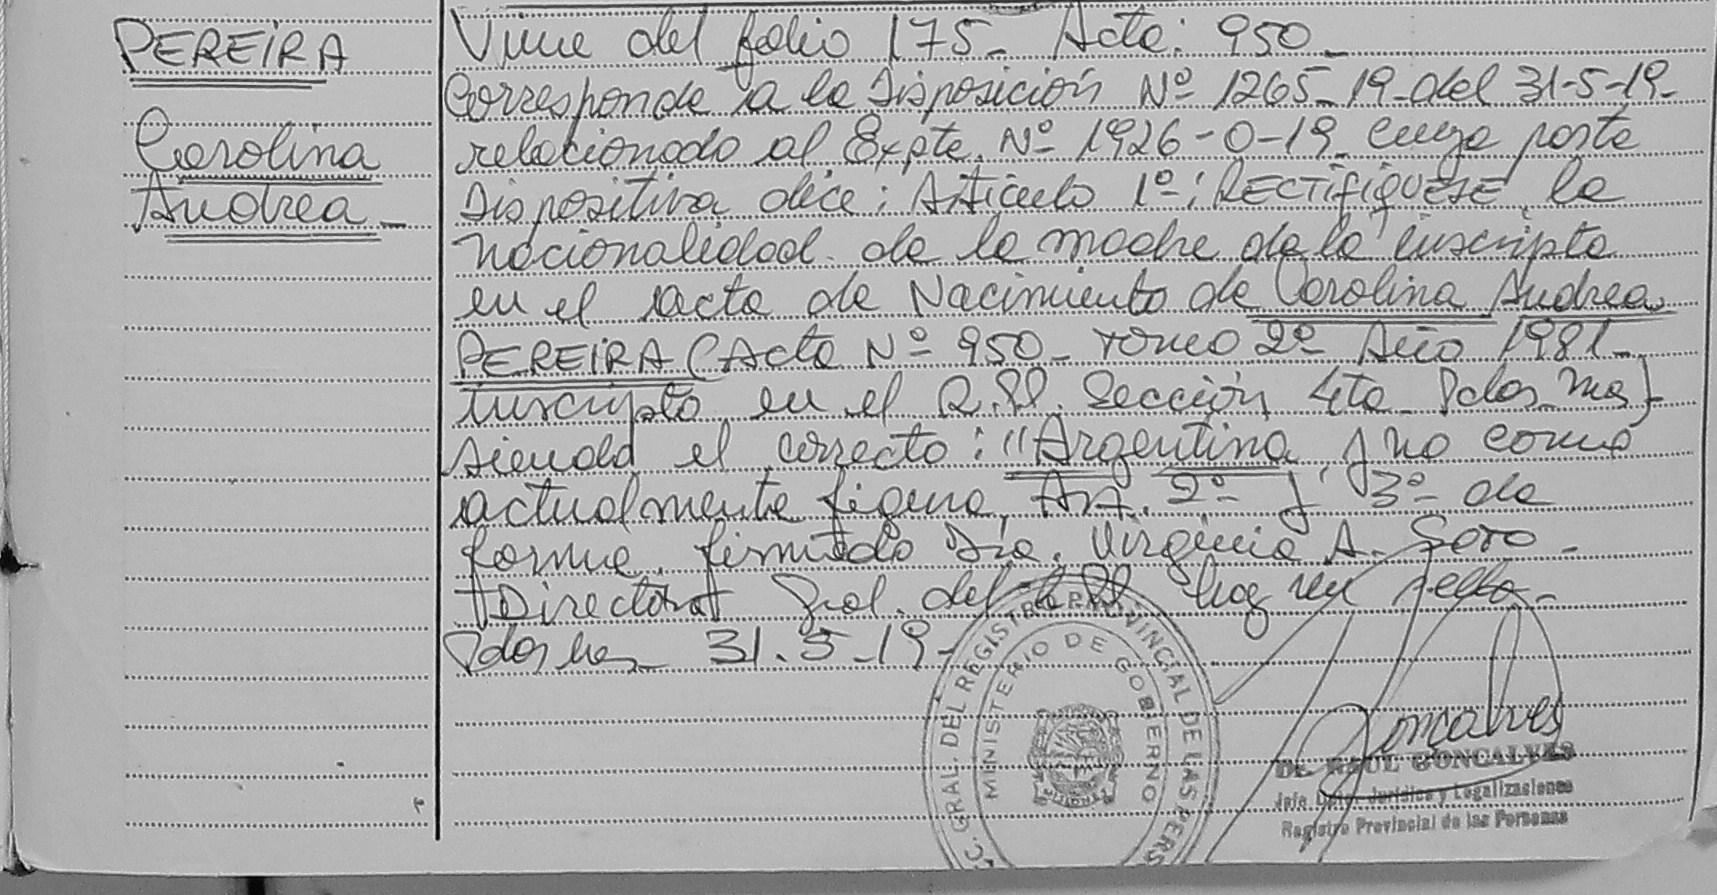 PEREIRA
Carolina
Andrea -
Viene del folio 175 - Acta: 950 -
Corresponde a la Disposición Nº 1265-19 - del 31-5-19 -
relacionado al Expte. Nº 1926-0-19 - cuya parte
Dispositiva dice: Artículo 1º: RECTIFIQUESE la
nacionalidad de la madre de la inscripta
en el acta de Nacimiento de Carolina Andrea
PEREIRA (Acta Nº 950 - Tomo 2º Año 1981 -
Inscripto en el R.P. Sección 4ta - Pdas. Mnes)
siendo el correcto: "Argentina y no como
actualmente figura. Art. 2º y 3º de
forma. firmado Dra. Virginia A.
Directora Gral. del R.P. hay un sello -
Pdas Mnes - 31-5-19 -
C. GRAL. DEL REGISTRO PROVINCIAL DE LAS PERS
MINISTERIO DE GOBIERNO
MISIONES
Goncalves
Dr. RAUL GONCALVES
Jefe Dpto. Jurídico y Legalizaciones
Registro Provincial de las Personas